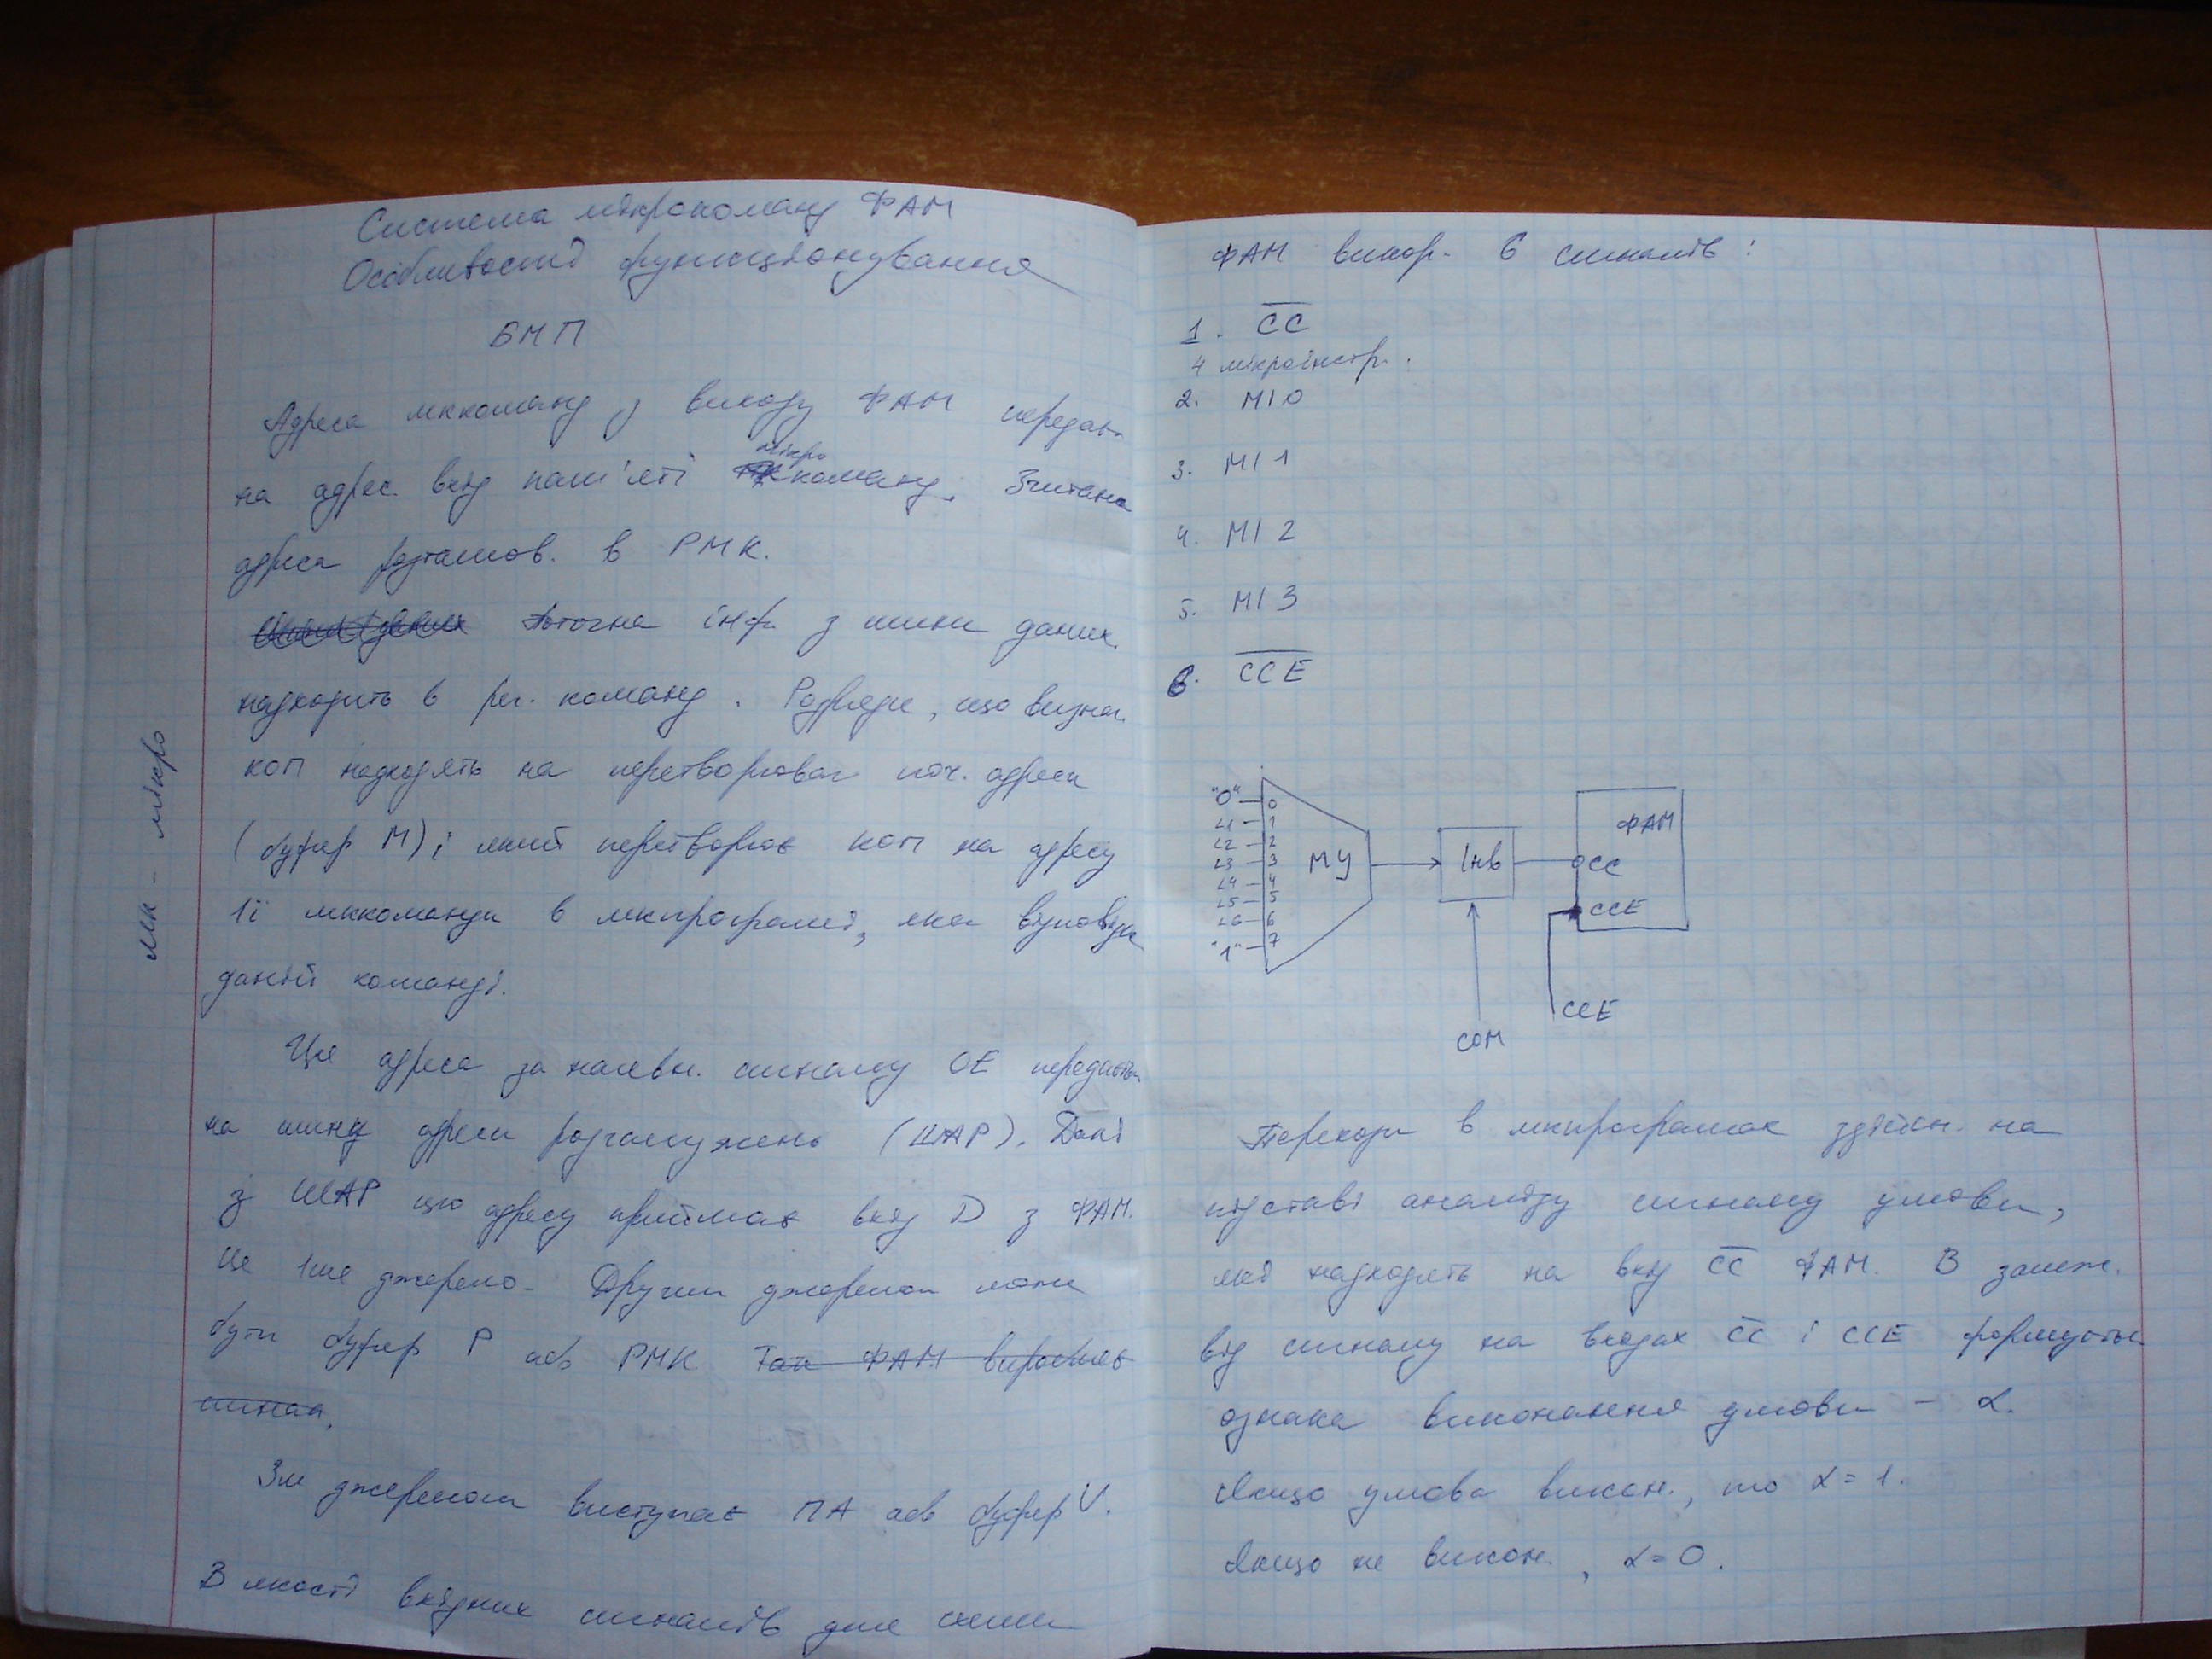 Система мікрокоманд ФАМ
Особливості функціонування
БМП
Адреса мккоманд з виходу ФАМ передає.
на адрес. вхід пам'яті мікро команд. Зчитана
адреса розташов. в РМК.
Поточна інф. з шини даних.
надходить в рег. команд. Розряди, що визнач.
КОП надходять на перетворювач поч. адреси
(буфер М), який перетворює КОП на адресу
1ї мккоманди в мкпрограмі, яка відповідає
даній команді.
Ця адреса за наявн. сигналу OE передається
на шину адреси розгалужень (ШАР). Далі
з ШАР цю адресу приймає вхід D з ФАМ.
Це 1ше джерело. Другим джерелом може
бути буфер Р або РМК Так ФАМ виробляє
сигнал.
3м джерелом виступає ПА або буфер V.
В якості вхідних сигналів для схеми
мк - мікро
ФАМ викор. 6 сигналів:
1. C̅C̅
4 мікроінстр.
2. MI0
3. MI1
4. MI2
5. MI3
6. C̅C̅E̅
"0" 0
L1 1
L2 2
L3 3
L4 4
L5 5
L6 6
"1" 7
МУ
Інв
ФАМ
CC
CCE
CCE
COM
Переходи в мкпрограмах здійсн. на
підставі аналізу сигналу умови,
які надходять на вхід C̅C̅ ФАМ. В залеж.
від сигналу на входах C̅C̅ і CCE формується
ознака виконання умови - α.
Якщо умова викон., то α = 1.
Якщо не викон., α = 0.